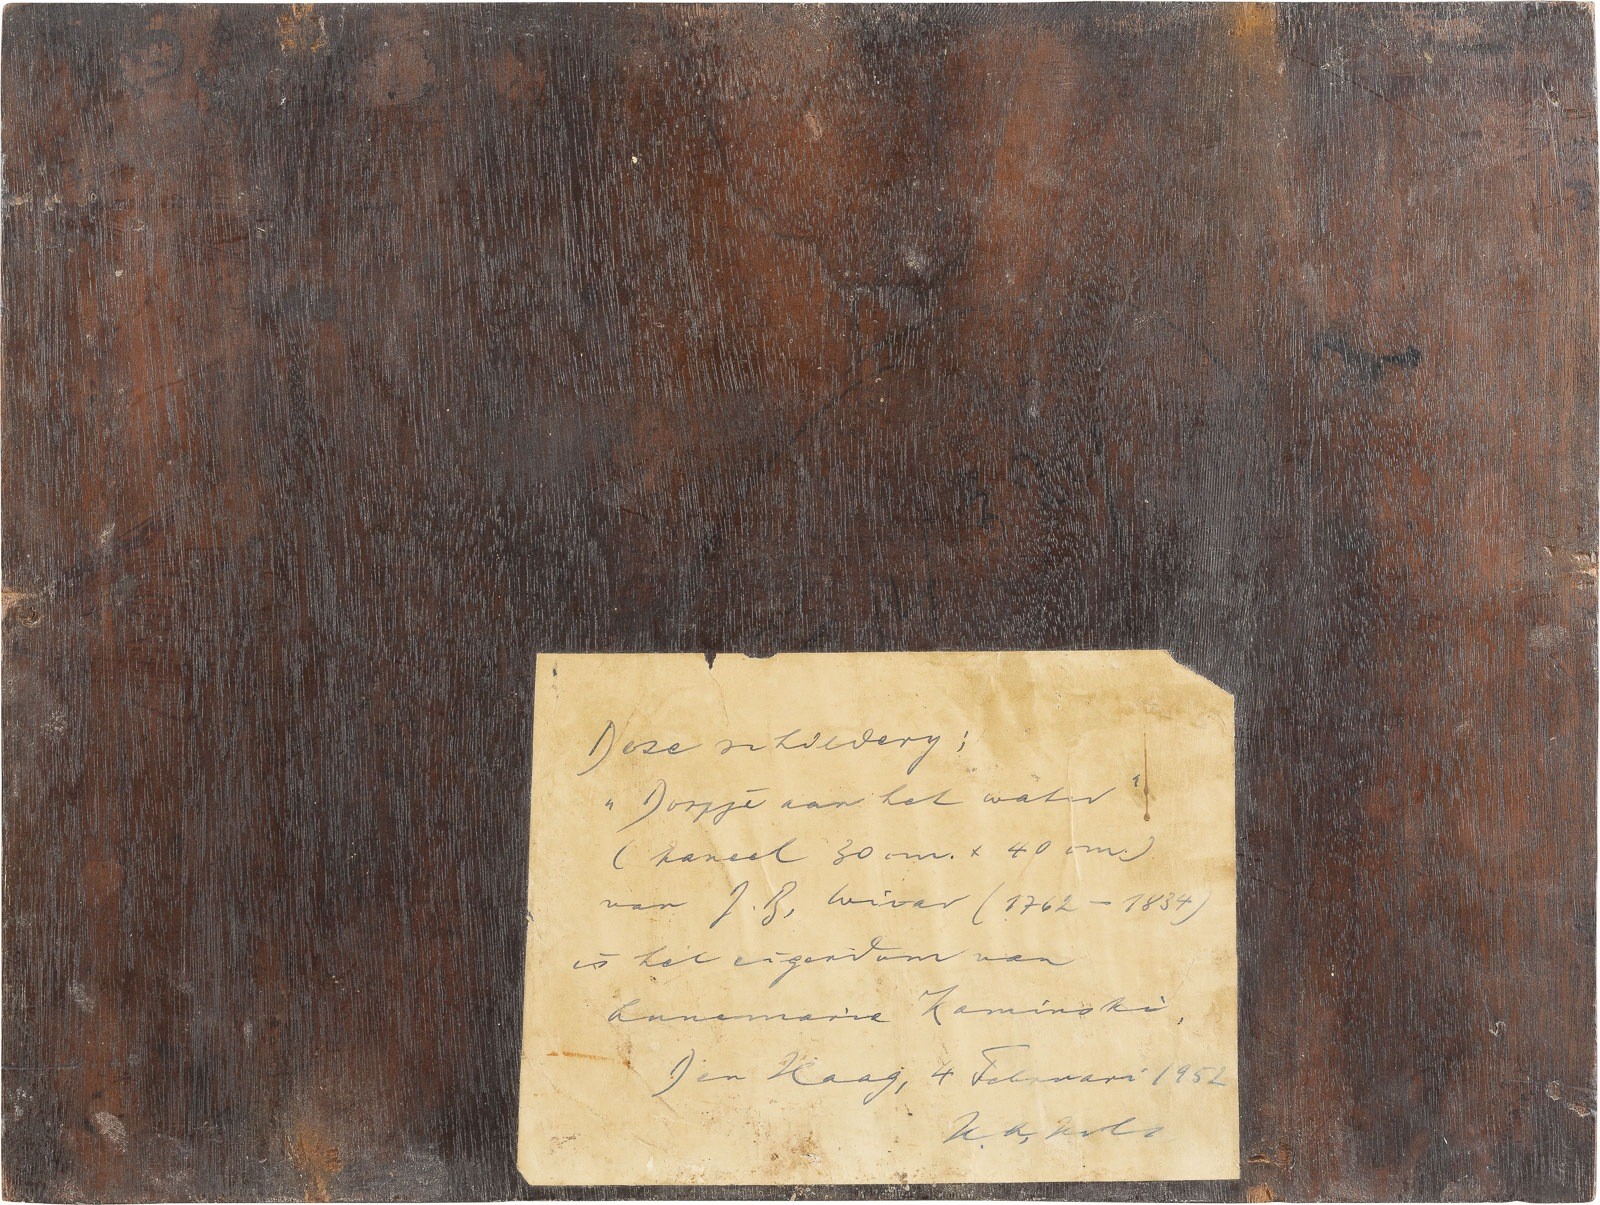 Deze schildery;
"Dorpje aan het water"
(paneel 30 cm. x 40 cm.)
van J. B. Wivar (1762 - 1834)
is het eigendom van
Annemarie Kaminski,
Den Haag, 4 Februari 1952